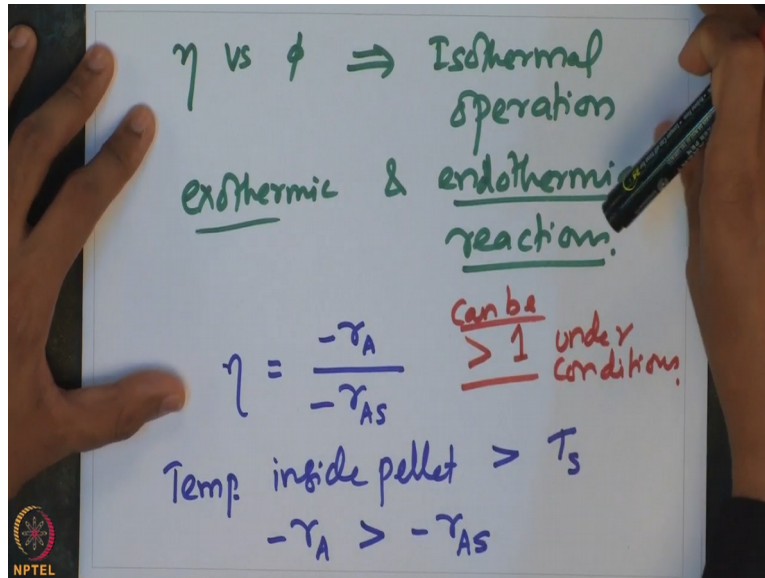 η vs φ ⇒ Isothermal
operation
exothermic & endothermic
reactions.
η = -rA / -rAS
can be
> 1 under
conditions.
Temp. inside pellet > Ts
-rA > -rAS
NPTEL